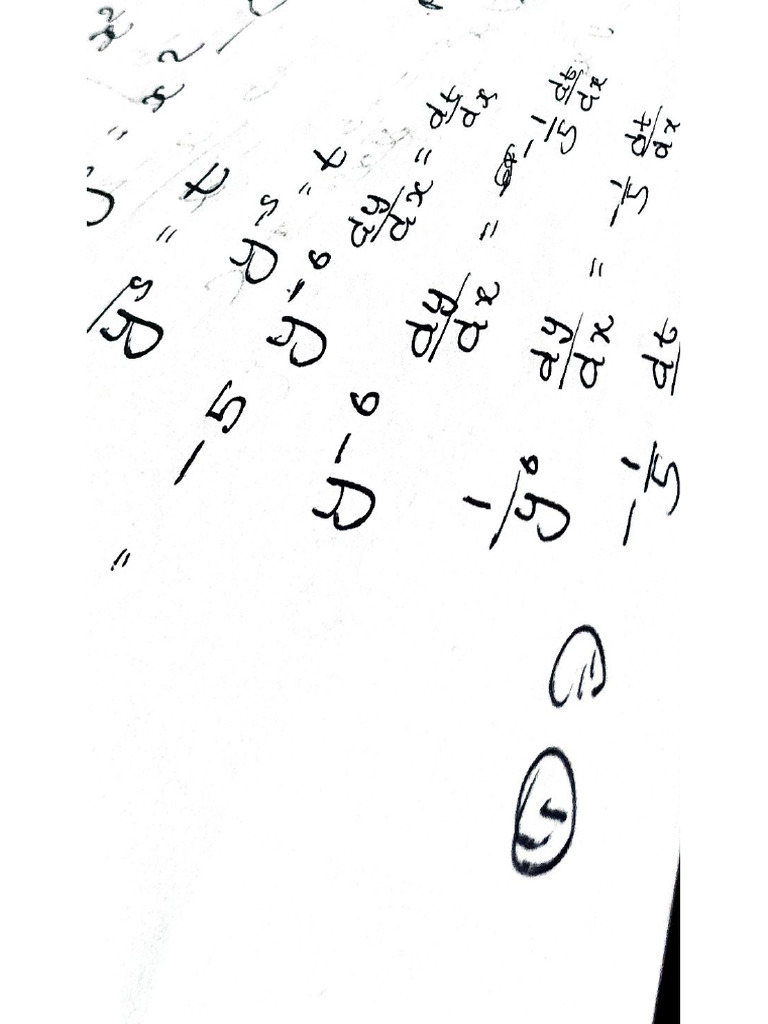 x²
= x²
1/y⁵ = t
y⁻⁵ = t
= -5 y⁻⁶ dy/dx = dt/dx
y⁻⁶ dy/dx = -1/5 dt/dx
1/y⁶ dy/dx = -1/5 dt/dx
-1/5 dt